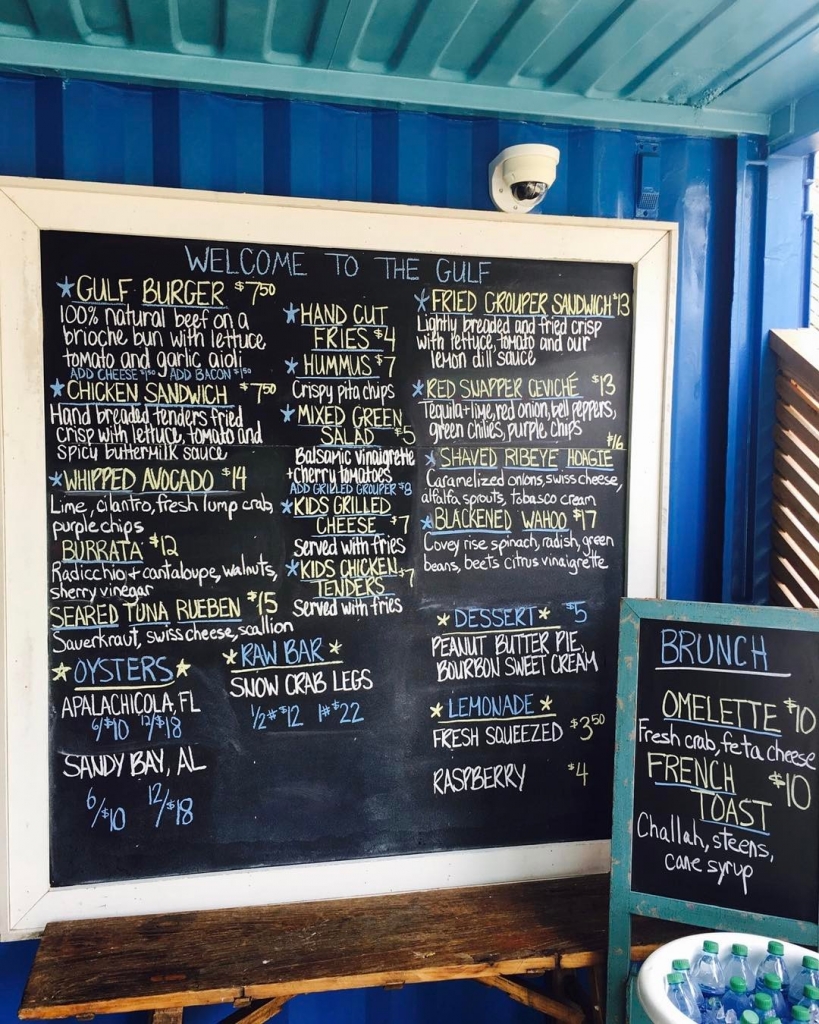 WELCOME TO THE GULF
*GULF BURGER $7.50
100% natural beef on a
brioche bun with lettuce
tomato and garlic aioli
ADD CHEESE $1.50 ADD BACON $1.50
*CHICKEN SANDWICH $7.50
Hand breaded tenders fried
crisp with lettuce, tomato and
spicy buttermilk sauce
*WHIPPED AVOCADO $14
Lime, cilantro, fresh lump crab
purple chips
BURRATA $12
Radicchio + cantaloupe, walnuts,
sherry vinegar
SEARED TUNA RUEBEN $15
Sauerkraut, swiss cheese, scallion
*OYSTERS*
APALACHICOLA, FL
6/$10 12/$18
SANDY BAY, AL
6/$10 12/$18
*HAND CUT
FRIES $4
*HUMMUS $7
Crispy pita chips
*MIXED GREEN
SALAD $5
Balsamic vinaigrette
+ cherry tomatoes
ADD GRILLED GROUPER $8
*KIDS GRILLED
CHEESE $7
Served with fries
*KIDS CHICKEN
TENDERS $7
Served with fries
*RAW BAR*
SNOW CRAB LEGS
1/2# $12 1# $22
*FRIED GROUPER SANDWICH $13
Lightly breaded and fried crisp
with lettuce, tomato and our
lemon dill sauce
*RED SNAPPER CEVICHÉ $13
Tequila + lime, red onion, bell peppers,
green chilies, purple chips
*SHAVED RIBEYE HOAGIE $16
Caramelized onions, swiss cheese,
alfalfa sprouts, tobasco cream
*BLACKENED WAHOO $17
Covey rise spinach, radish, green
beans, beets citrus vinaigrette
*DESSERT* $5
PEANUT BUTTER PIE,
BOURBON SWEET CREAM
*LEMONADE*
FRESH SQUEEZED $3.50
RASPBERRY $4
BRUNCH
OMELETTE $10
Fresh crab, feta cheese
FRENCH $10
TOAST
Challah, steens,
cane syrup